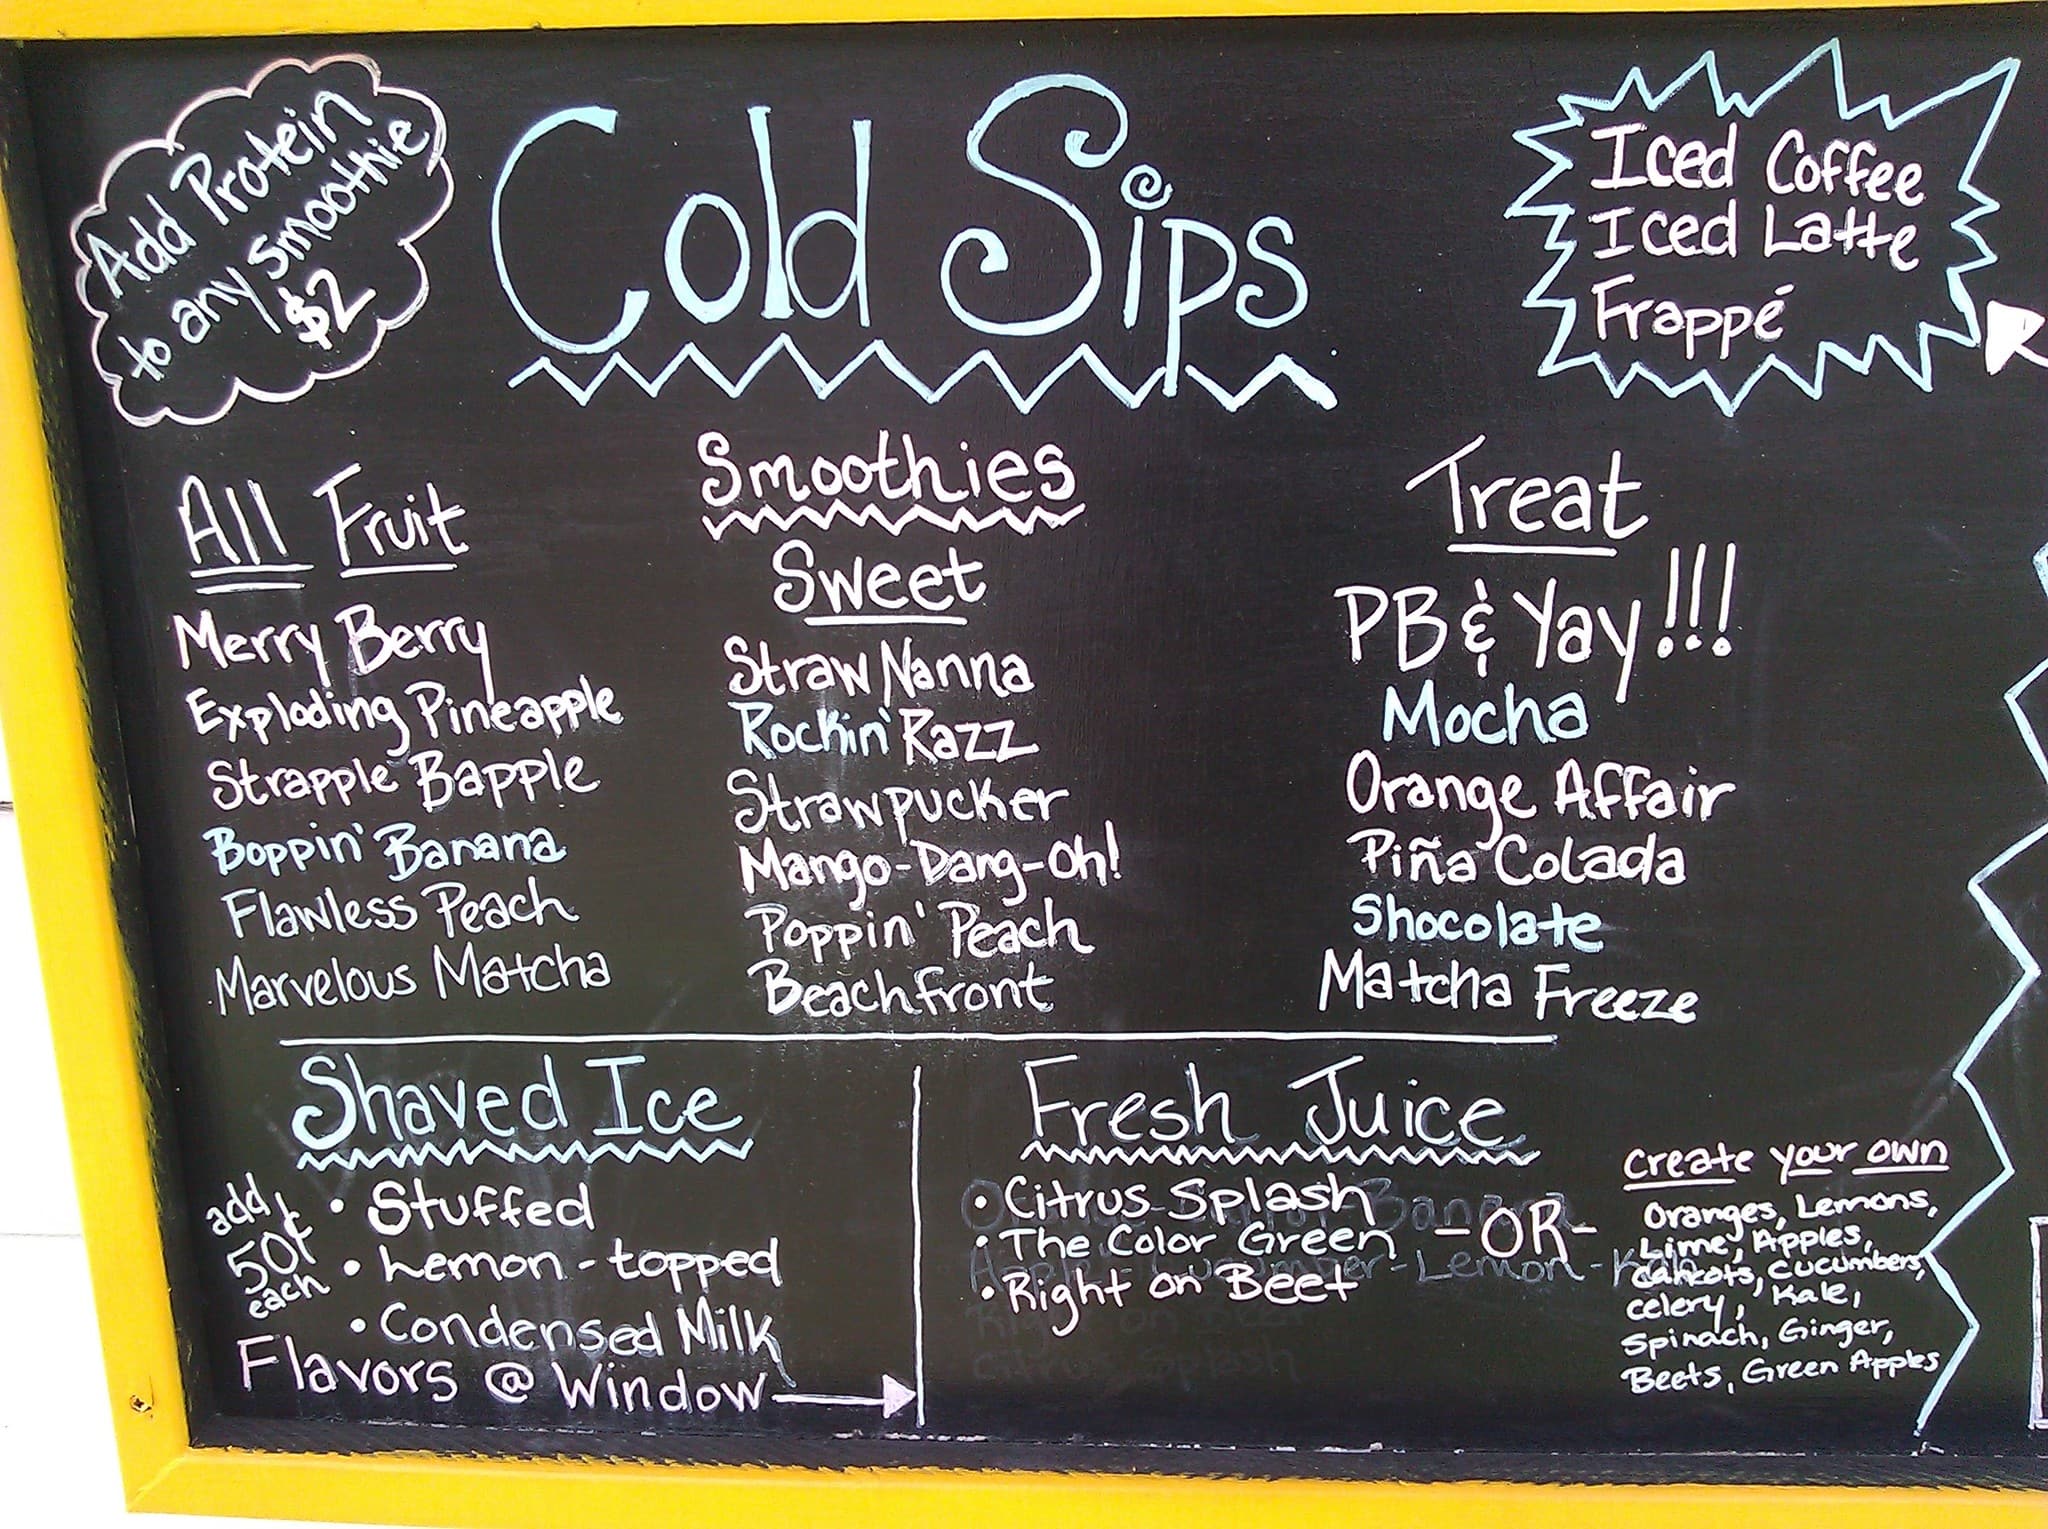 Add Protein
to any smoothie
$2
Cold Sips
Iced Coffee
Iced Latte
Frappé
Smoothies
All Fruit
Merry Berry
Exploding Pineapple
Strapple Bapple
Boppin' Banana
Flawless Peach
Marvelous Matcha
Sweet
Straw Nanna
Rockin' Razz
Strawpucker
Mango-Dang-Oh!
Poppin' Peach
Beachfront
Treat
PB & Yay!!!
Mocha
Orange Affair
Piña Colada
Shocolate
Matcha Freeze
Shaved Ice
add
50¢
each
• Stuffed
• Lemon-topped
• Condensed Milk
Flavors @ Window
Fresh Juice
• Citrus Splash
• The Color Green
• Right on Beet
-OR-
create your own
Oranges, Lemons,
Lime, Apples,
Carrots, Cucumbers,
celery, Kale,
Spinach, Ginger,
Beets, Green Apples